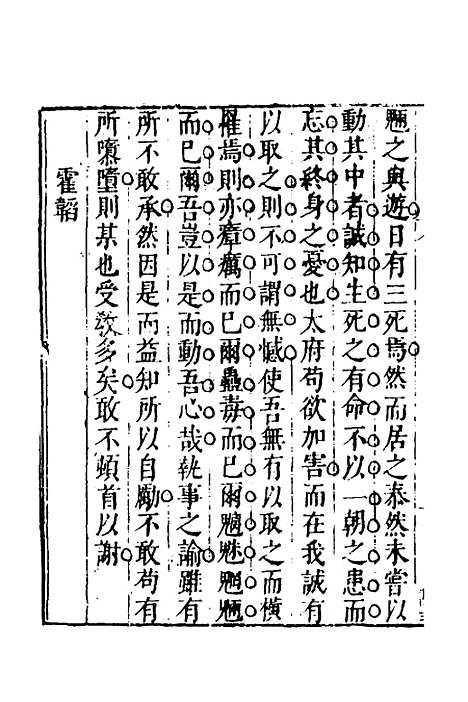 魎之與遊日有三死焉然而居之泰然未嘗以
動其中者誠知生死之有命不以一朝之患而
忘其終身之憂也太府苟欲加害而在我誠有
以取之則不可謂無憾使吾無有以取之而橫
罹焉則亦瘴癘而已爾蠱毒而已爾魑魅魍魎
而已爾吾豈以是而動吾心哉執事之諭雖有
所不敢承然因是而益知所以自勵不敢苟有
所隳墮則某也受敎多矣敢不頓首以謝
霍韜